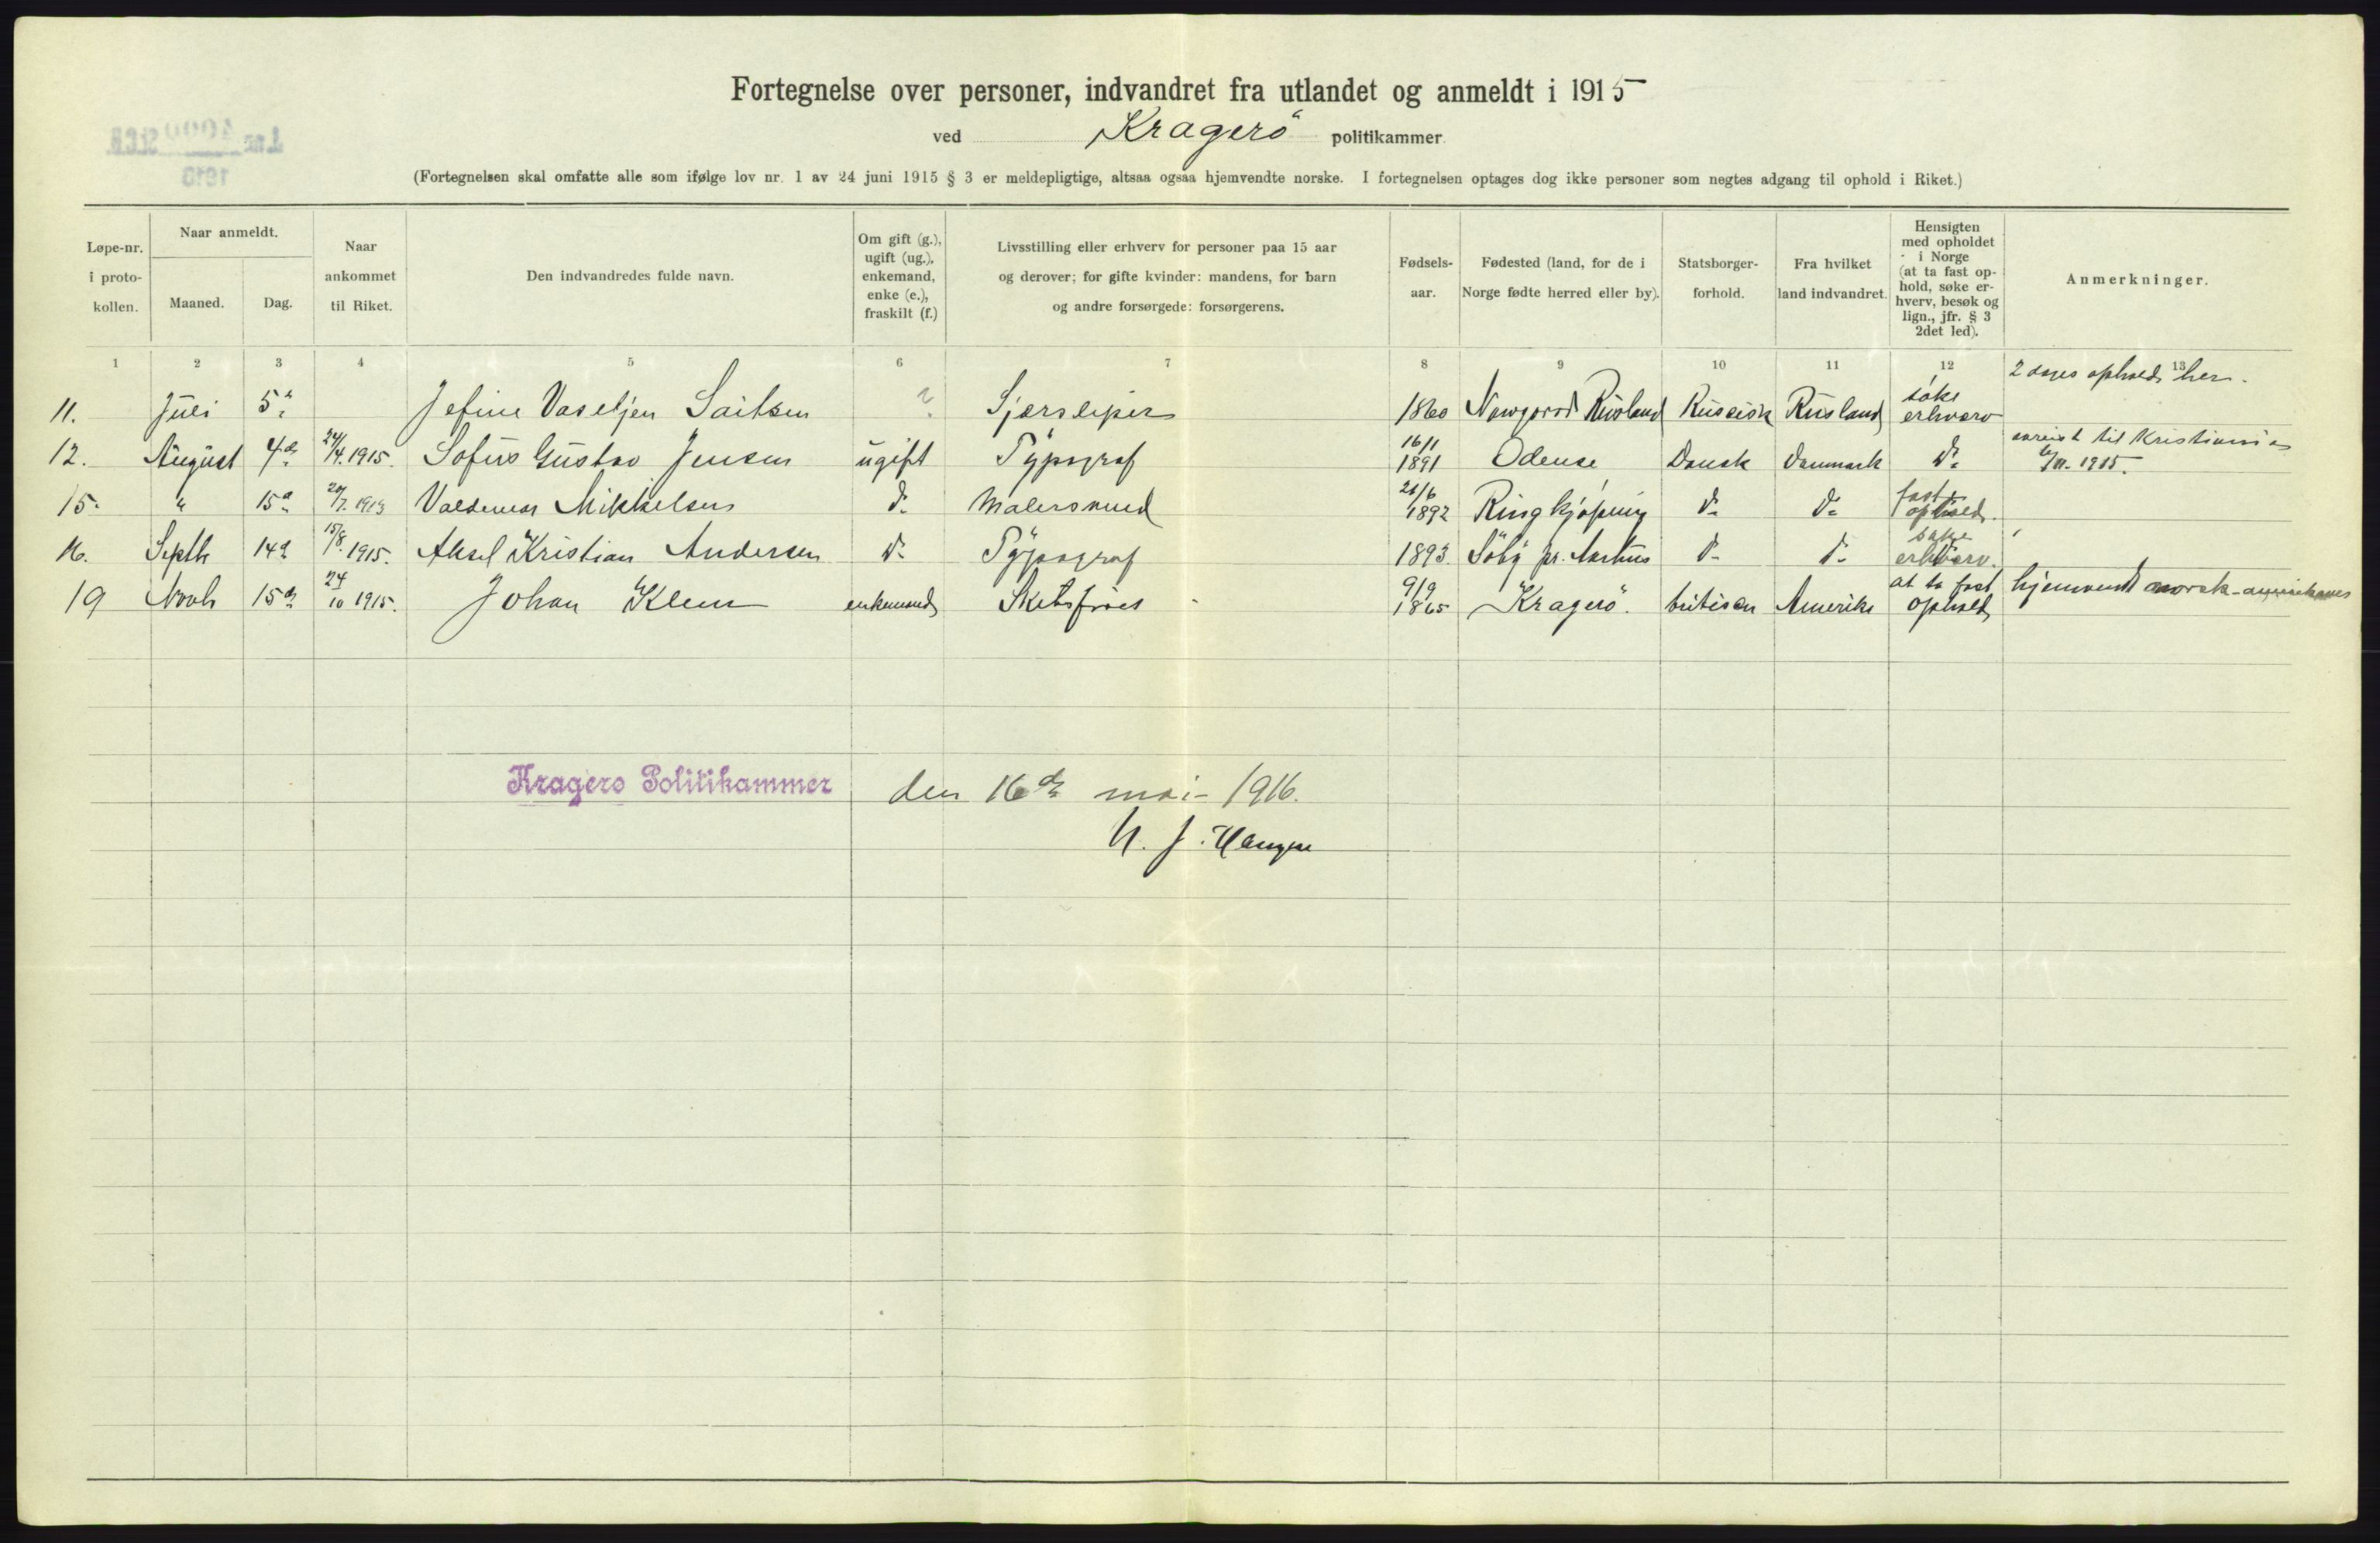 Fortegnelse over personer, indvandret fra utlandet og anmeldt i 1915
ved Kragerö politikammer
(Fortegnelsen skal omfatte alle som ifølge lov nr. 1 av 24 juni 1915 § 3 er meldepligtige, altsaa ogsaa hjemvendte norske. I fortegnelsen optages dog ikke personer som negtes adgang til ophold i Riket.)
Løpe-nr. i proto-kollen.
Naar anmeldt.
Maaned.
Dag.
Naar ankommet til Riket.
Den indvandredes fulde navn.
Om gift (g.), ugift (ug.), enkemand, enke (e.), fraskilt (f.)
Livsstilling eller erhverv for personer paa 15 aar og derover; for gifte kvinder: mandens, for barn og andre forsørgede: forsørgerens.
Fødsels-aar.
Fødested (land, for de i Norge fødte herred eller by).
Statsborger-forhold.
Fra hvilket land indvandret.
Hensigten med opholdet i Norge (at ta fast op-hold, søke er-hverv, besøk og lign., jfr. § 3 2det led).
Anmerkninger.
1 2 3 4 5 6 7 8 9 10 11 12 13
11. Juli 5 ? 1860 Nowgorod Rusland Russisk Rusland søke erhverv 2 dages ophold her.
12. August 4 24/4. 1915. Sofus Gustav Jensen ugift Typograf 16/11 1891 Odense Dansk Danmark do avreist til Kristiania 1915.
15. " 15 20/7. 1913 Valdemar Mikkelsen do Malersvend 21/6 1892 Ringkjøping do do fast ophold.
16. Septb 14 15/8. 1915. Aksel Kristian Andersen do Typograf 1893. Söby pr. Aarhus do do søke erhverv.
19 Novb 15 24/10 1915. Johan Klem enkemand 9/9 1865 Kragerö. Amerika at ta fast ophold hjemvendt norsk-amerikaner
Kragerø Politikammer den 16de mai 1916.